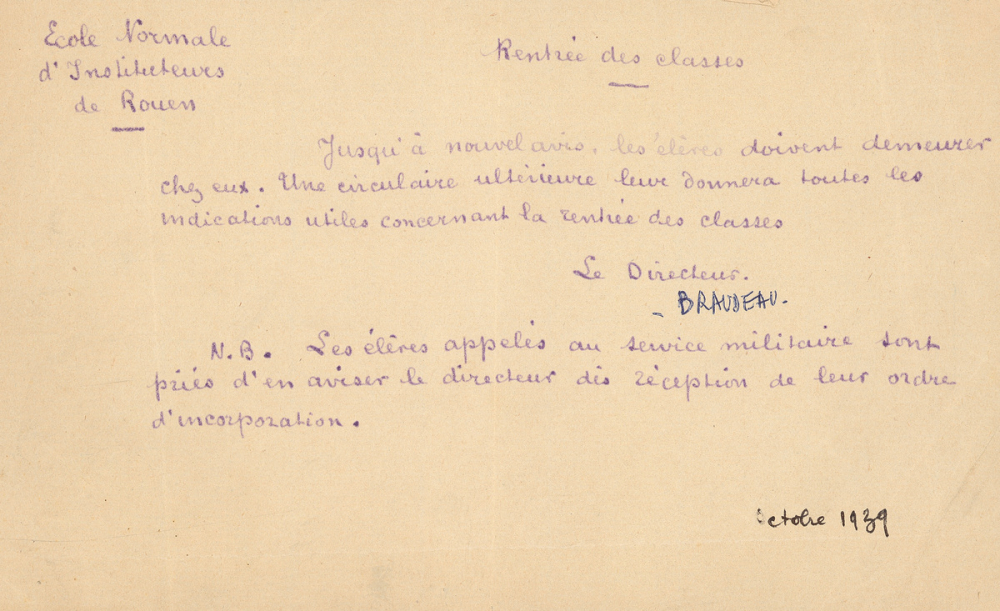 Ecole Normale
d'Instituteurs
de Rouen
Rentrée des classes
Jusqu'à nouvel avis, les élèves doivent demeurer
chez eux. Une circulaire ultérieure leur donnera toutes les
indications utiles concernant la rentrée des classes
Le Directeur.
- BRAUDEAU.
N.B. Les élèves appelés au service militaire sont
priés d'en aviser le directeur dès réception de leur ordre
d'incorporation.
octobre 1939